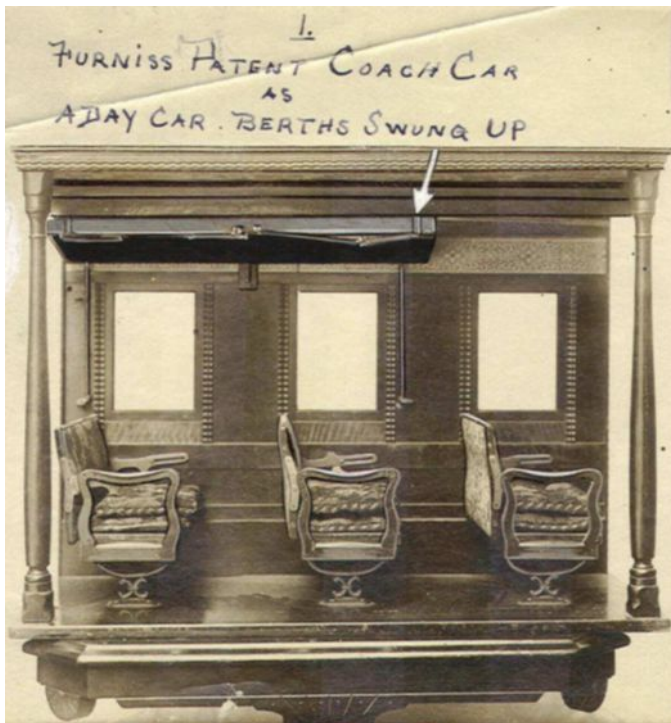 1.
FURNISS PATENT COACH CAR
AS
A DAY CAR. BERTHS SWUNG UP